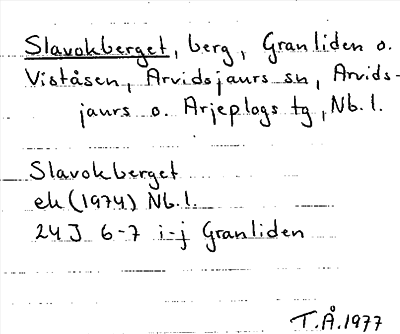 Slavokberget, berg, Granliden o.
Viståsen, Arvidsjaurs sn, Arvids-
jaurs o. Arjeplogs tg, Nb.l.
Slavokberget
ek (1974) Nb.l.
24J 6-7 i-j Granliden
T.Å.1977